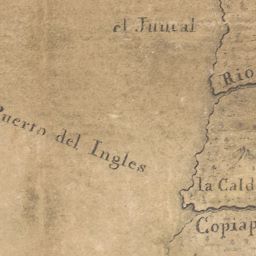 el Juncal
Rio
Puerto del Ingles
la Cald
Copiap